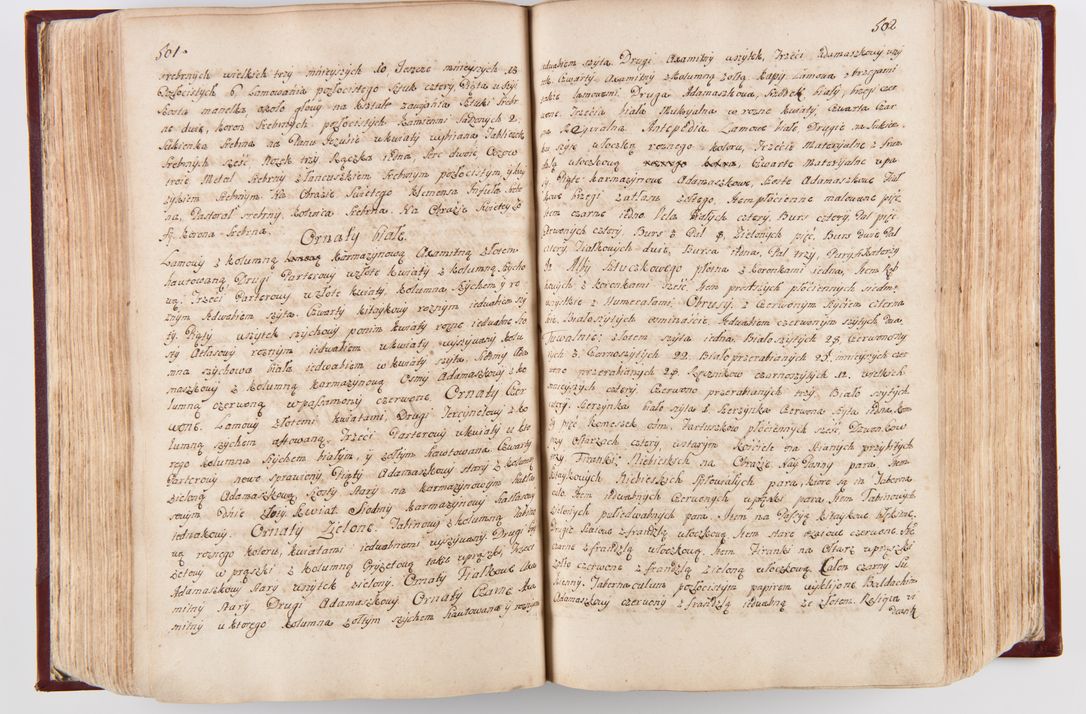 501.
srebrnych wielkich trzy mnieyszych 10, Jeszcze mnieyszych 18
Pozłocistych 6 Lamowania pozłocistego Sztuk cztery, Piąta w tyi
Szosta manelka, około głowy na kształt zawięzia Sztuki Srebr
ne dwie, Koron Srebrnych pozłocistych kamieńmi sadzonych 2,
Sukienka Srebrna na Panu Jezusie w kwiaty wybiiana, Tabliczek
Srebrnych sześć Nozek trzy Rączka iedna, Serc dwoie Oczow
troie Metal Srebrny z Łancuszkiem Srebrnym pozłocistym, y krzy
zykiem Srebrnym. Na Obrazie Swiętego Klemensa Infuła Srebr
na, Pastorał srebrny, Kotwica Srebrna. Na Obrazie Swiętey Zo
fij, Korona Srebrna.
Ornaty białe.
Lamowy z kolumną karmazynową Axamitną złotem
hawtowaną Drugi Parterowy w złote kwiaty z kolumną Szycho
wą, Trzeci Parterowy w złote kwiaty, kolumna Szychem y ro
znym Jedwabiem szyta, Czwarty kitaykowy roznym iedwabiem szy
ty, Piąty wszytek szychowy ponim kwiaty rozne iedwabne Szo
sty Atłasowy roznym iedwabiem w kwiaty wyszywany kolu
mna szychowa biała iedwabiem w kwiaty szyta, Siodmy Ada
maszkowy z kolumną karmazynową Osmy Adamaszkowy z ko
lumną czerwoną w passamony czerwone, Ornaty Czer
wone. Lamowy złotemi kwiatami, Drugi Tercynelowy z ko
lumną szychem aftowaną, Trzeci Parterowy w kwiaty u kto
rego kolumna Szychem białym y zołtym hawtowana, Czwarty
Parterowy nowo sprawiony, Piąty Adamaszkowy stary z kolumną
zieloną Adamaszkową Szosty stary na karmazynowym hatła
sowym dnie złoty kwiat Siodmy karmazynowy hatłasowy
iednakowy. Ornaty Zielone, Tabinowy z kolumną tabino
wą roznego koloru, kwiatami iedwabnemi wyszywany, Drugi
zielony w prązki z kolumną Gryzetową także w prązki, Trzeci
Adamaszkowy stary wszytek zielony. Ornaty Fialkowe Axa
mitny stary Drugi Adamaszkowy. Ornaty Czarne Axa
mitny u ktorego kolumna zołtym szychem hawtowana y roznym
502
iedwabiem szyta. Drugi Axamitny wszytek, Trzeci Adamaszkowy wszy
tek, Czwarty Axamitny z kolumną zołtą Kapy Lamowa z brzegami
także lamowemi, Druga Adamaszkowa, Szrodek biały, brzegi czer
wone, Trzecia biała Mukoyalna w rozne kwiaty, Czwarta Czar
na Requialna. Antepedia. Lamowe białe, Drugie na Sukien
ku, szyie włoczką roznego koloru, Trzecie Materyalne z fran
dzlą włoczkową Czwarte Materyalne w pa
sy, Piąte karmazynowe Adamaszkowe, Szoste Adamaszkowe Fial
kowe brzegi z atłasu zołtego, Item płocienne malowane pięć
Item czarne iedno Vela Białych cztery, Burs cztery, Pal pięć
Czerwonych cztery, Burs 2 Pal 8, Zielonych pięć, Burs dwie Pal
cztery, Fialkowych dwie, Bursa iedna, Pal trzy, Puryfikaterzy
Alby Sztuczkowego płotna z koronkami iedna, Item Rąb
kowych z koronkami sześć Item prostszych płociennych siedm,
wszystkie z Humerałami, Obrusy, z czerwonym szyciem czterna
ście, Białoszytych osmnaście, Jedwabiem czerwonym szytych dwa,
Tuwalnie, złotem szyta iedna, Białoszytych 28, Czerwonoszy
tych 3, Czarnoszytych 22, Biało przerabianych 23, mnieyszych czer
wono przerabianych 24, Ręcznikow czarnoszytych 12, wielkich
mnieyszych cztery, Czerwono przerabianych trzy, Biało szytych
cztery, Pierzynka biało szyta 1, Pierzynka czerwona szyta iedna, Kom
pięć, Komeszek osm, Fartuszkow płociennych sześć, Dzwonkow
przy Ołtarzach cztery, w starym Kościele na scianych przybitych
trzy, Firanki Niebieskich na Obrazie Nay: Panny para, Item
Kitaykowych Niebieskich Spłowiałych para, ktore są in Taberna
culo, Item iedwabnych Czerwonych w prązki para, Item Tabinowych
zielonych połiedwabnych para, Item na Passyą kitaykowe błękitne,
Drugie Rasowe z frandzlą włoczkową, Item stare rasowe czerwone No:
czarne z frandzlą włoczkową, Item Firanki na Ołtarz w prązki
zołto czerwone z frandzlą zieloną włoczkową, Całon czarny Su
kienny. Tabernaculum pozłocistym papirem wyklione, Baldachin
Adamaszkowy czerwony z frandzlą iedwabną ze złotem. Religia ni